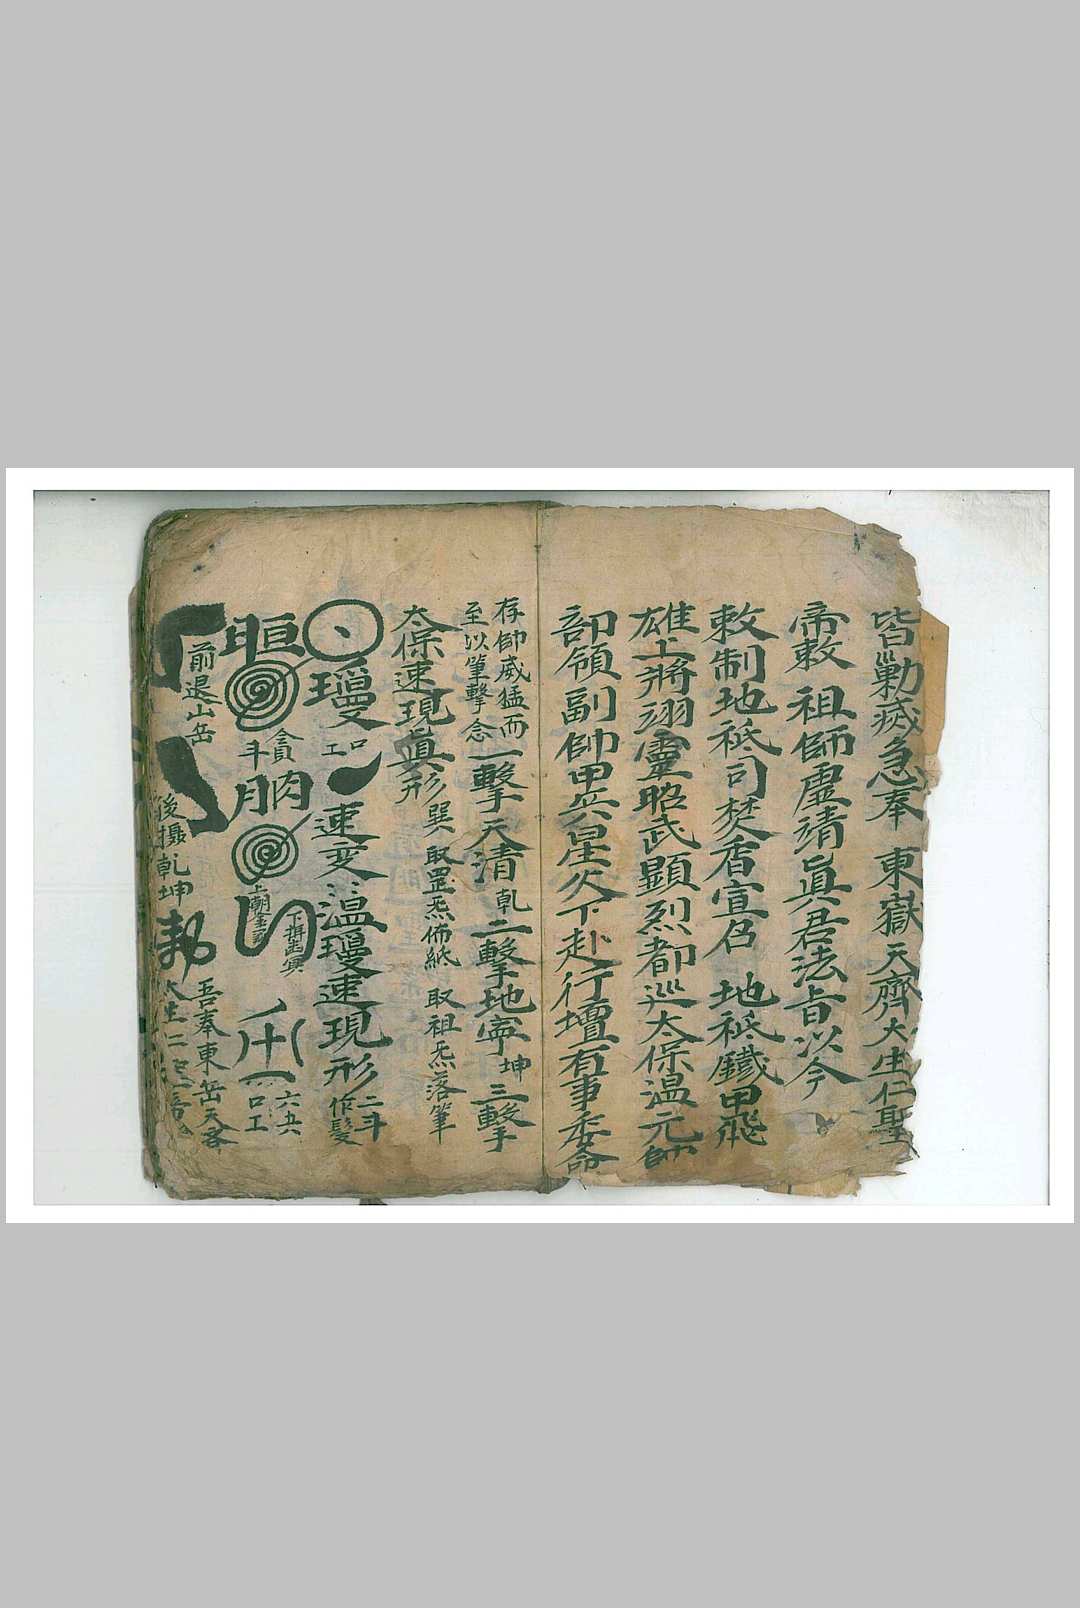 皆勦滅急奉　東嶽天齊大生仁聖
帝敕　祖師虛靖眞君法旨以今
敕制地祇司焚香宣召　地祇鐵甲飛
雄上將翊靈昭武顯烈都巡太保温元帥
部領副帥甲兵星火下赴行壇有事委命
存帥威猛而
至以筆擊念
一擊天清乾二擊地寧坤三擊
太保速現眞形巽　取罡炁佈紙　取祖炁落筆
瓊　口工　速变温瓊速現形二斗作髮
晅　貪斗　肭　上朝　下拜　六五六　口工
前退山岳
後攝乾坤
吾奉東岳天齊
大生仁